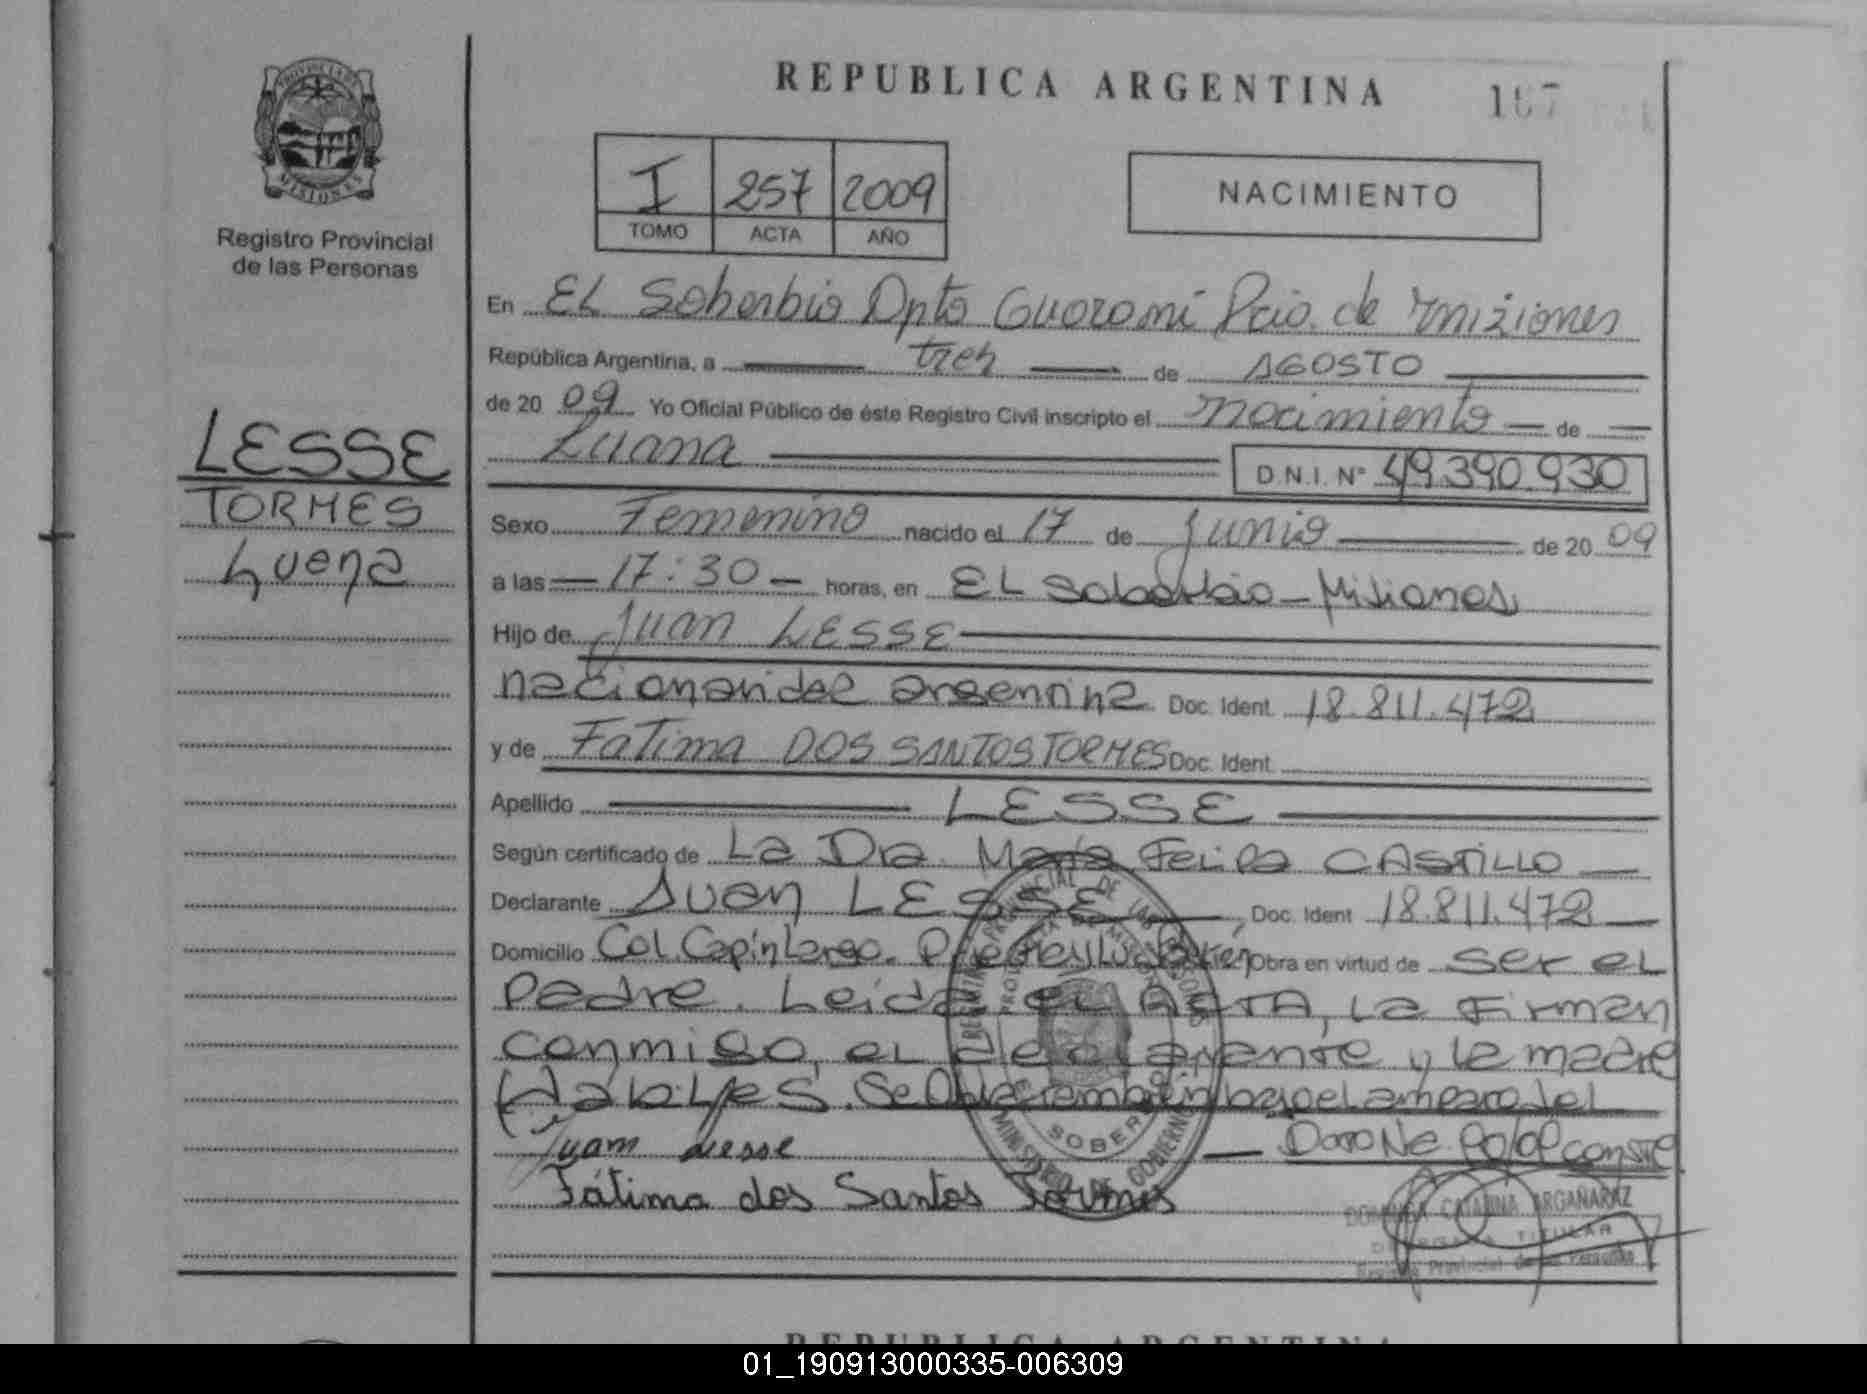 PROVINCIA DE
MISIONES
Registro Provincial
de las Personas
LESSE
TORMES
Luana
REPUBLICA ARGENTINA
187
I 257 2009
TOMO ACTA AÑO
NACIMIENTO
En EL Soberbio Dpto Guarani Pcia. de misiones
República Argentina, a tres de AGOSTO
de 20 09 Yo Oficial Público de éste Registro Civil inscripto el nacimiento de
Luana D.N.I. Nº 49.390.930
Sexo Femenino nacido el 17 de Junio de 20 09
a las 17:30 horas, en EL Soberbio - Misiones
Hijo de Juan LESSE
nacionalidad argentina Doc. Ident. 18.811.472
y de Fatima DOS SANTOS TORMES Doc. Ident.
Apellido LESSE
Según certificado de La Dra. María Felipa CASTILLO
Declarante Juan LESSE, Doc. Ident 18.811.472
Domicilio Col. Capin Largo. Obra en virtud de ser el
Padre. Leida el ACTA, la Firman
conmigo, el declarante y la madre
Habiles. Se bajo el amparo del
Juan Lesse conste
Fátima dos Santos Tormes
REGISTRO PROVINCIAL DE LAS PERSONAS
MINISTERIO DE GOBIERNO
CATALINA ARGAÑARAZ
TITULAR
Provincial de las Personas
REPUBLICA ARGENTINA
01_190913000335-006309